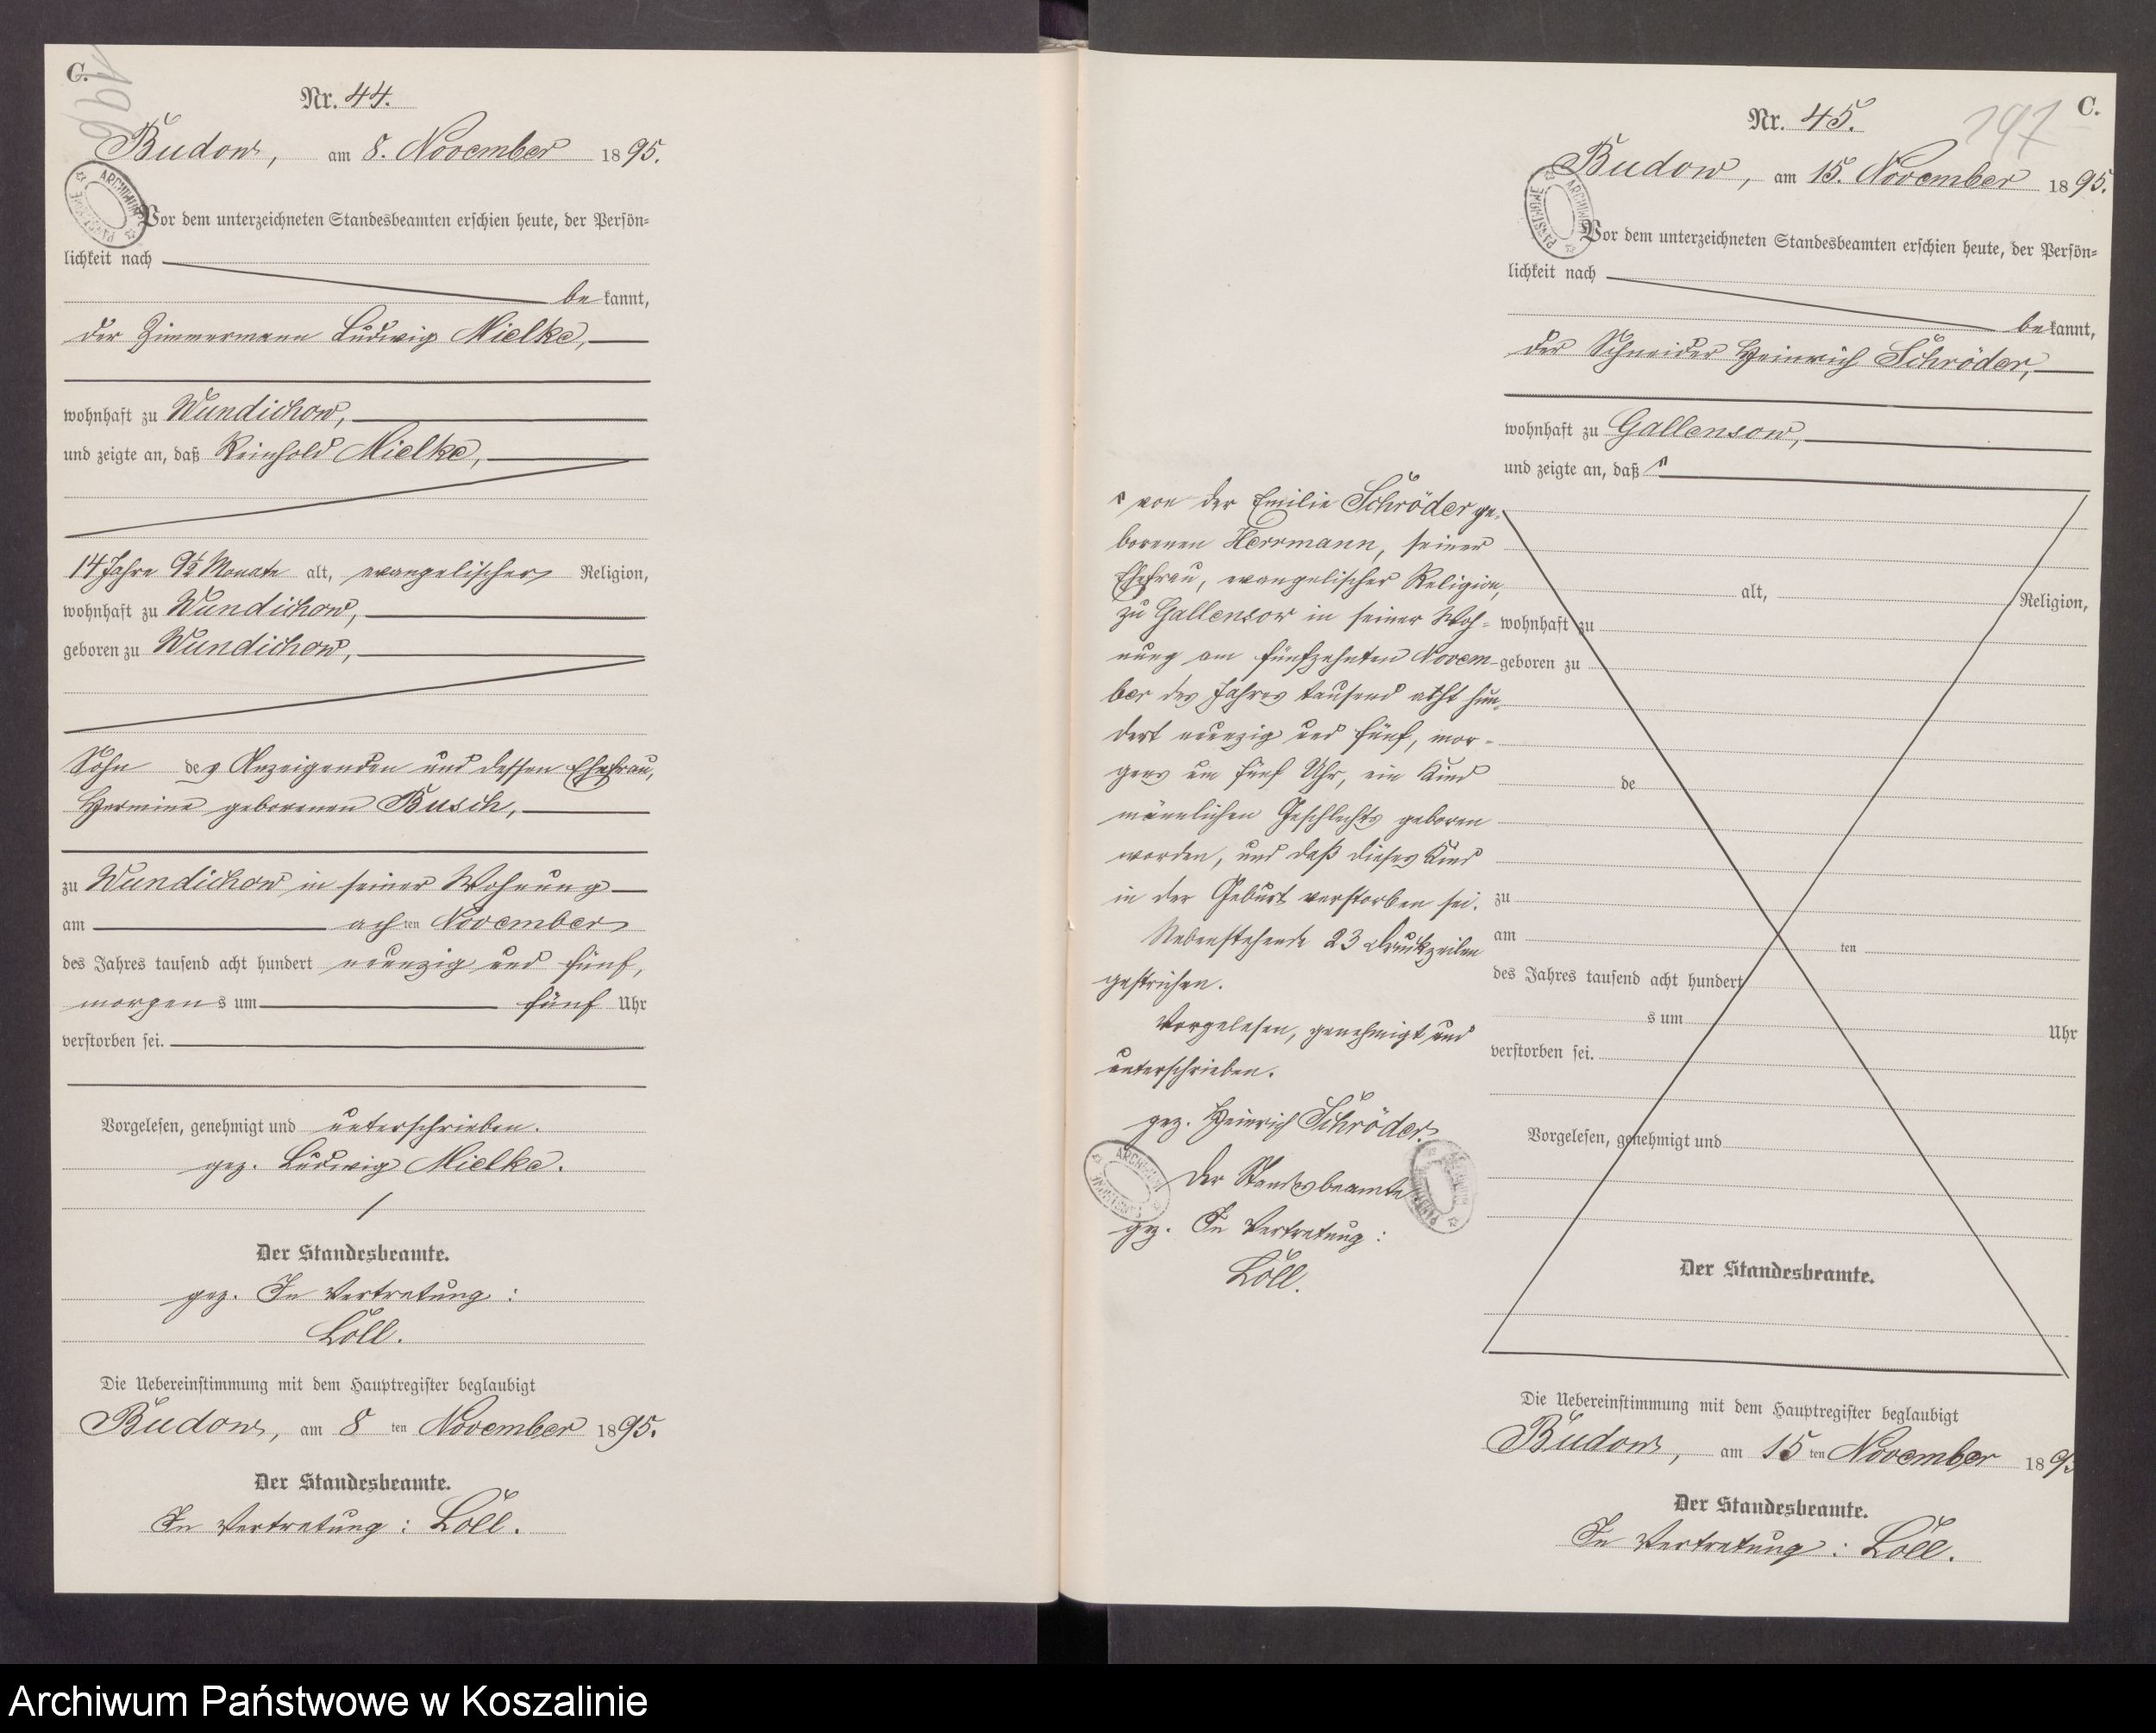 C.
196
Nr. 44.
Budow, am 8. November 1895.
ARCHIWUM PAŃSTWOWE
Vor dem unterzeichneten Standesbeamten erschien heute, der Persön-
lichkeit nach
bekannt,
der Zimmermann Ludwig Mielke,
wohnhaft zu Wundichow,
und zeigte an, daß Reinhold Mielke,
14 Jahre 9½ Monate alt, evangelischer Religion,
wohnhaft zu Wundichow,
geboren zu Wundichow,
Sohn des Anzeigenden und dessen Ehefrau,
Hermine geborenen Busch,
zu Wundichow in seiner Wohnung
am achten November
des Jahres tausend acht hundert neunzig und fünf,
morgens um fünf Uhr
verstorben sei.
Vorgelesen, genehmigt und unterschrieben.
gez. Ludwig Mielke.
Der Standesbeamte.
gez. In Vertretung:
Löll.
Die Uebereinstimmung mit dem Hauptregister beglaubigt
Budow, am 8ten November 1895.
Der Standesbeamte.
In Vertretung: Löll.
C.
197
Nr. 45.
Budow, am 15. November 1895.
ARCHIWUM PAŃSTWOWE
Vor dem unterzeichneten Standesbeamten erschien heute, der Persön-
lichkeit nach
bekannt,
der Schneider Heinrich Schröder,
wohnhaft zu Gallensow,
und zeigte an, daß
von der Emilie Schröder ge-
borenen Herrmann, seiner
Ehefrau, evangelischer Religion,
zu Gallensow in seiner Woh-
nung am fünfzehnten Novem-
ber des Jahres tausend acht hun-
dert neunzig und fünf, mor-
gens um fünf Uhr, ein Kind
männlichen Geschlechts geboren
worden, und daß dieses Kind
in der Geburt verstorben sei.
Nebenstehende 23 Druckzeilen
gestrichen.
Vorgelesen, genehmigt und
unterschrieben.
gez. Heinrich Schröder.
Der Standesbeamte.
gez. In Vertretung:
Löll.
ARCHIWUM PAŃSTWOWE
ARCHIWUM PAŃSTWOWE
alt, Religion,
wohnhaft zu
geboren zu
de
zu
am ten
des Jahres tausend acht hundert
s um Uhr
verstorben sei.
Vorgelesen, genehmigt und
Der Standesbeamte.
Die Uebereinstimmung mit dem Hauptregister beglaubigt
Budow, am 15ten November 189
Der Standesbeamte.
In Vertretung: Löll.
Archiwum Państwowe w Koszalinie